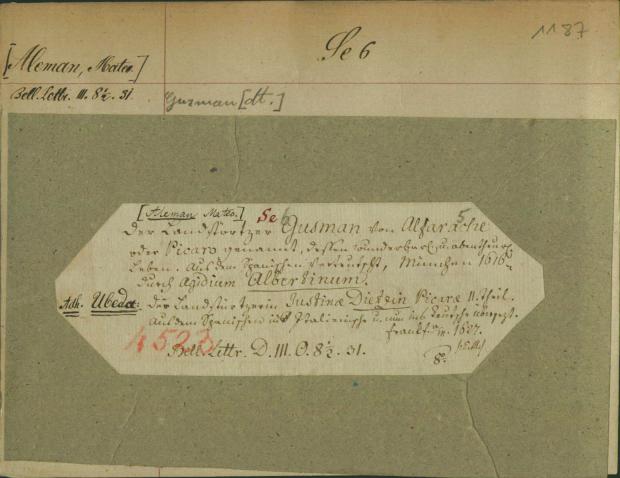 1187
Se 6
[Aleman, Mateo.]
Bell. Lettr. III. 8½. 31.
Gusman [dt.]
[Aleman Mateo.] Se 6
5
Der Landstörtzer Gusman von Alfarache
oder Picaro genannt, dessen wunderbarl. abentheurl.
Leben. Aus dem Spanischen verteutscht, München 1616
durch Agidium Albertinum.
Adh. Ubeda: Der Landstürtzerin Justinae Dietzin Picarae II. Theil.
Aus dem Spanischen ins Italienische u. nun ins Teutsche übersezt.
Frankf. 1627.
4523
Bell. Lettr. D. III. O. 8½. 31.
8°.